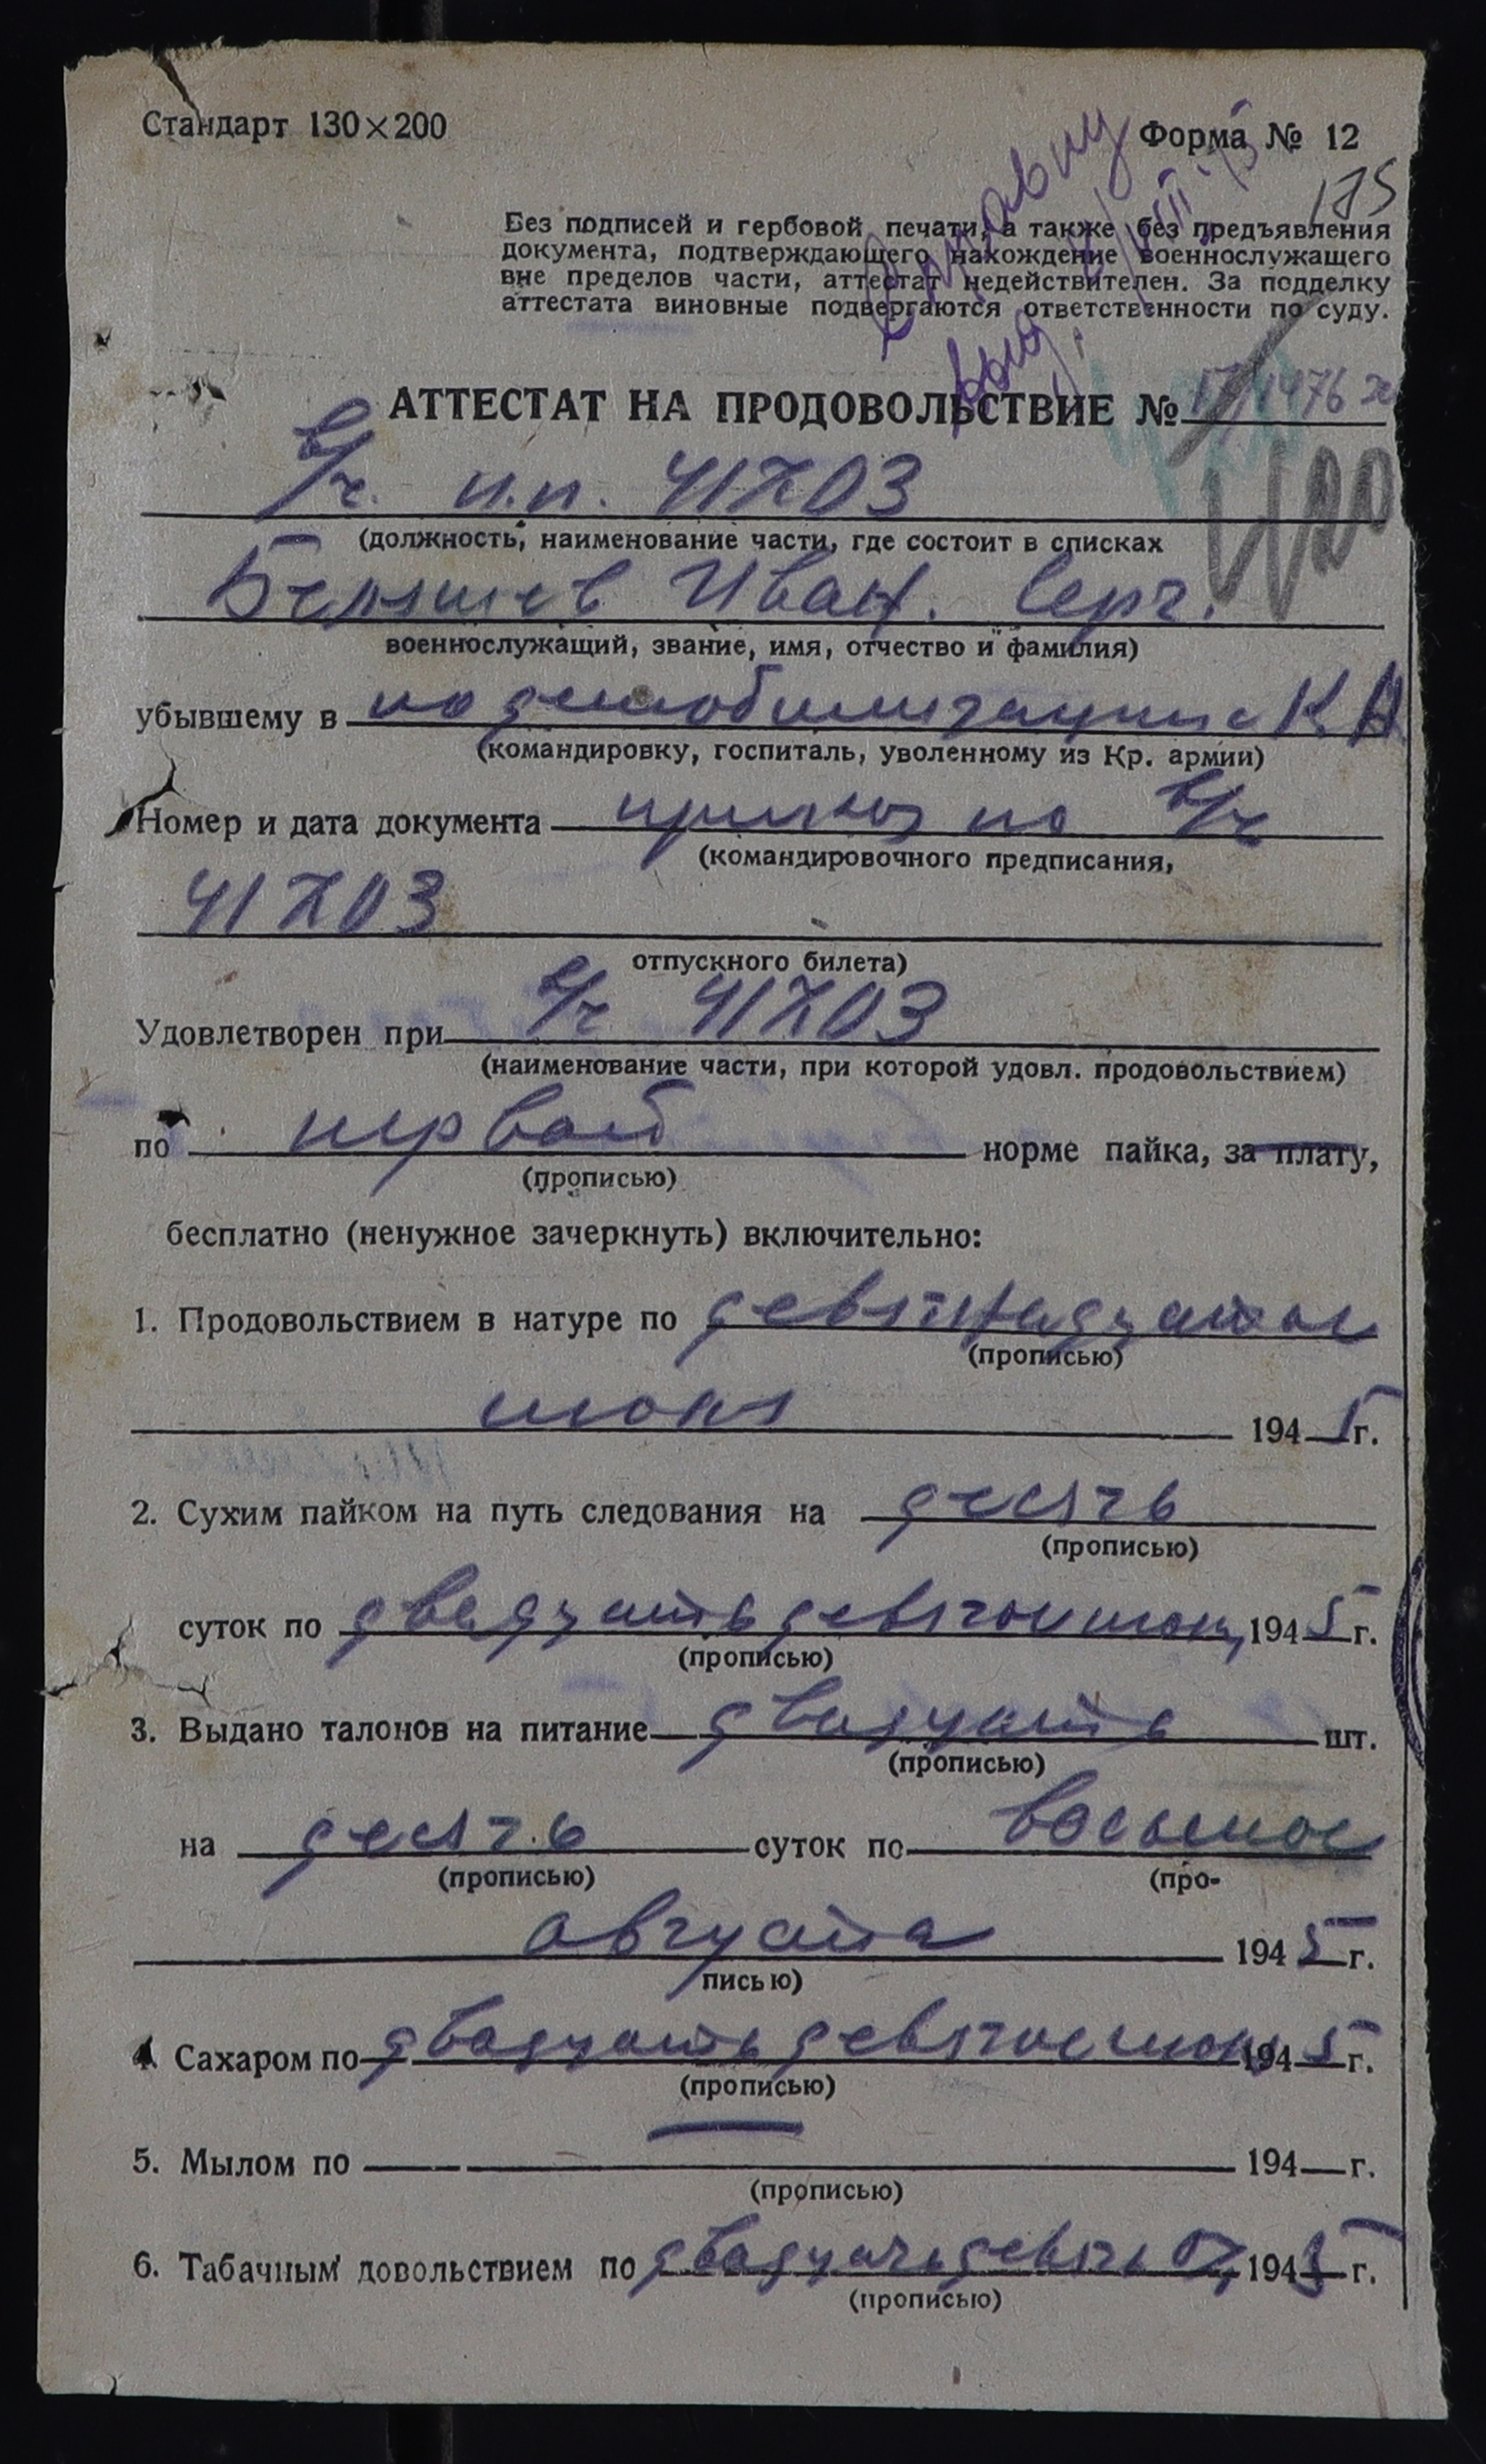 Стандарт 130×200
Форма № 12
175
Без подписей и гербовой печати, а также без предъявления
документа, подтверждающего нахождение военнослужащего
вне пределов части, аттестат недействителен. За подделку
аттестата виновные подвергаются ответственности по суду.
АТТЕСТАТ НА ПРОДОВОЛЬСТВИЕ №
в/ч. п.п. 41703
(должность, наименование части, где состоит в списках
Иван. Серг.
военнослужащий, звание, имя, отчество и фамилия)
убывшему в по демобилизации с КА
(командировку, госпиталь, уволенному из Кр. армии)
Номер и дата документа приказ по в/ч
(командировочного предписания,
41703
отпускного билета)
Удовлетворен при в/ч 41703
(наименование части, при которой удовл. продовольствием)
по первой норме пайка, за плату,
(прописью)
бесплатно (ненужное зачеркнуть) включительно:
1. Продовольствием в натуре по девятнадцатое
(прописью)
июля 1945 г.
2. Сухим пайком на путь следования на десять
(прописью)
суток по двадцать девятое июля 1945 г.
(прописью)
3. Выдано талонов на питание двадцать шт.
(прописью)
на десять суток по восьмое
(прописью) (про-
августа 1945 г.
писью)
4. Сахаром по двадцать девятое июля 1945 г.
(прописью)
5. Мылом по — 194 г.
(прописью)
6. Табачным довольствием по двадцать девять 07 1945 г.
(прописью)